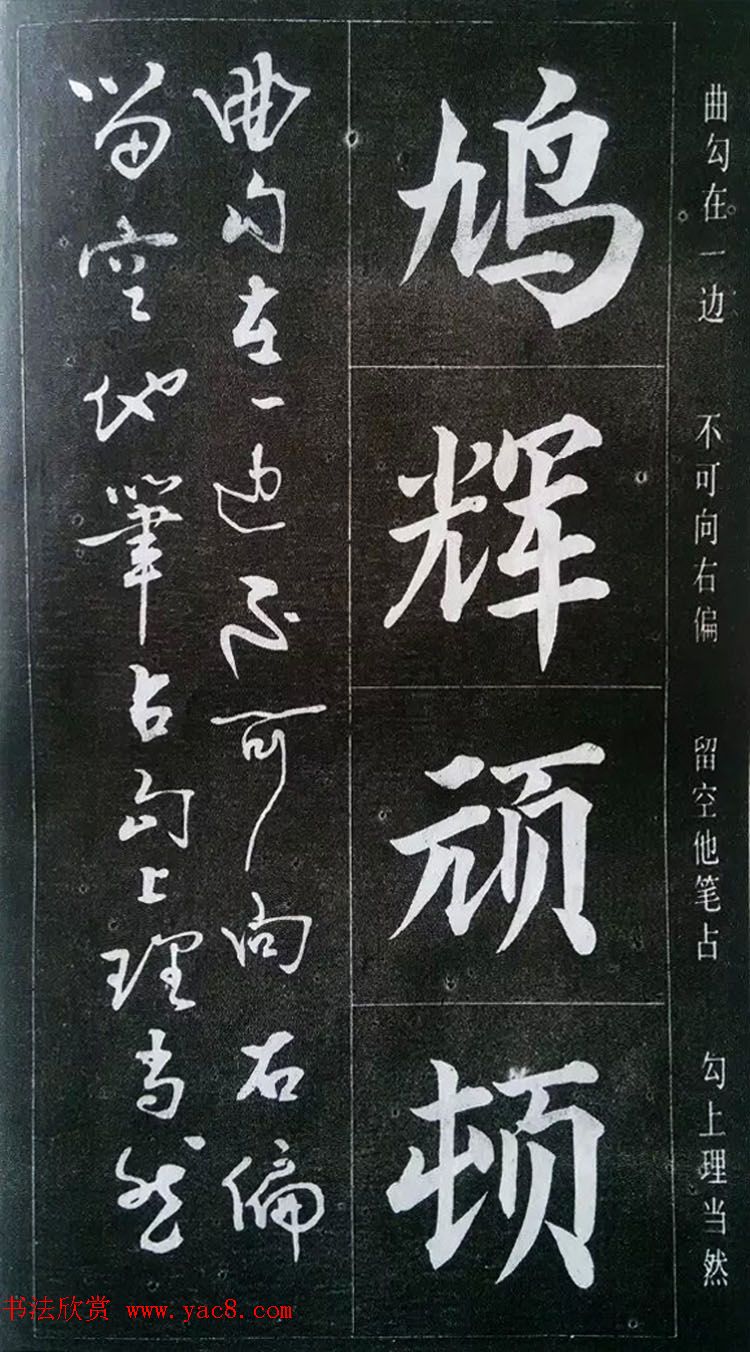 曲勾在一边 不可向右偏 留空他笔占 勾上理当然
鸠辉顽顿
曲勾在一边不可向右偏
留空他筆占勾上理当然
书法欣赏 www.yac8.com